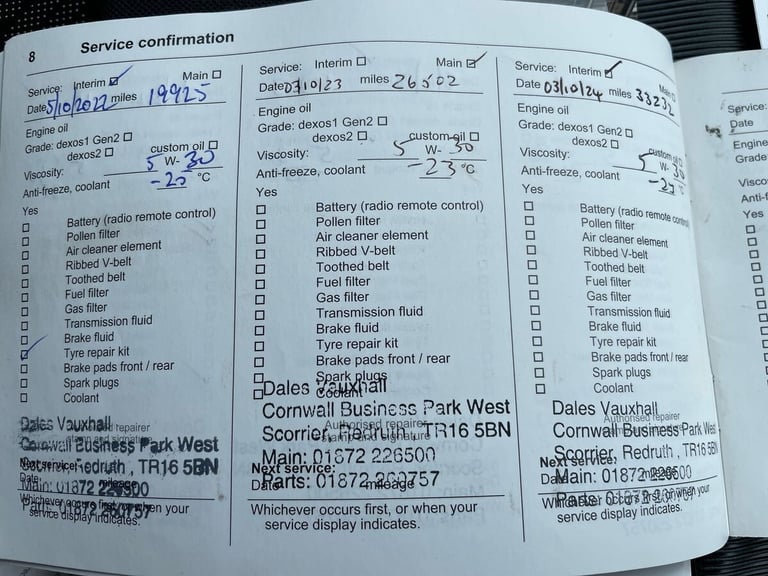 8
Service confirmation
Service: Interim Main
Date 5/10/2022 miles 19925
Engine oil
Grade: dexos1 Gen2
dexos2 custom oil
Viscosity: 5 W- 30
Anti-freeze, coolant -25 °C
Yes
Battery (radio remote control)
Pollen filter
Air cleaner element
Ribbed V-belt
Toothed belt
Fuel filter
Gas filter
Transmission fluid
Brake fluid
Tyre repair kit
Brake pads front / rear
Spark plugs
Coolant
Dales Vauxhall
Cornwall Business Park West
Scorrier, Redruth, TR16 5BN
Next service:
Date
Main: 01872 226500
Parts: 01872 260757
Whichever occurs first, or when your
service display indicates.
Service: Interim Main
Date 03/10/23 miles 26502
Engine oil
Grade: dexos1 Gen2
dexos2 custom oil
Viscosity: 5 W- 30
Anti-freeze, coolant -23 °C
Yes
Battery (radio remote control)
Pollen filter
Air cleaner element
Ribbed V-belt
Toothed belt
Fuel filter
Gas filter
Transmission fluid
Brake fluid
Tyre repair kit
Brake pads front / rear
Spark plugs
Coolant
Dales Vauxhall
Cornwall Business Park West
Authorised repairer
stamp and signature
Scorrier, Redruth, TR16 5BN
Main: 01872 226500
Next service:
Date mileage
Parts: 01872 260757
Whichever occurs first, or when your
service display indicates.
Service: Interim Main
Date 03/10/24 miles 33232
Engine oil
Grade: dexos1 Gen2
dexos2 custom oil
Viscosity: 5 W- 30
Anti-freeze, coolant °C
Yes
Battery (radio remote control)
Pollen filter
Air cleaner element
Ribbed V-belt
Toothed belt
Fuel filter
Gas filter
Transmission fluid
Brake fluid
Tyre repair kit
Brake pads front / rear
Spark plugs
Coolant
Dales Vauxhall
Authorised repairer
Cornwall Business Park West
Scorrier, Redruth, TR16 5BN
Next service:
Date mileage
Main: 01872 226500
Parts: 01872 260757
Whichever occurs first, or when your
service display indicates.
Service:
Date
Engine
Grade
Visco
Anti-f
Yes